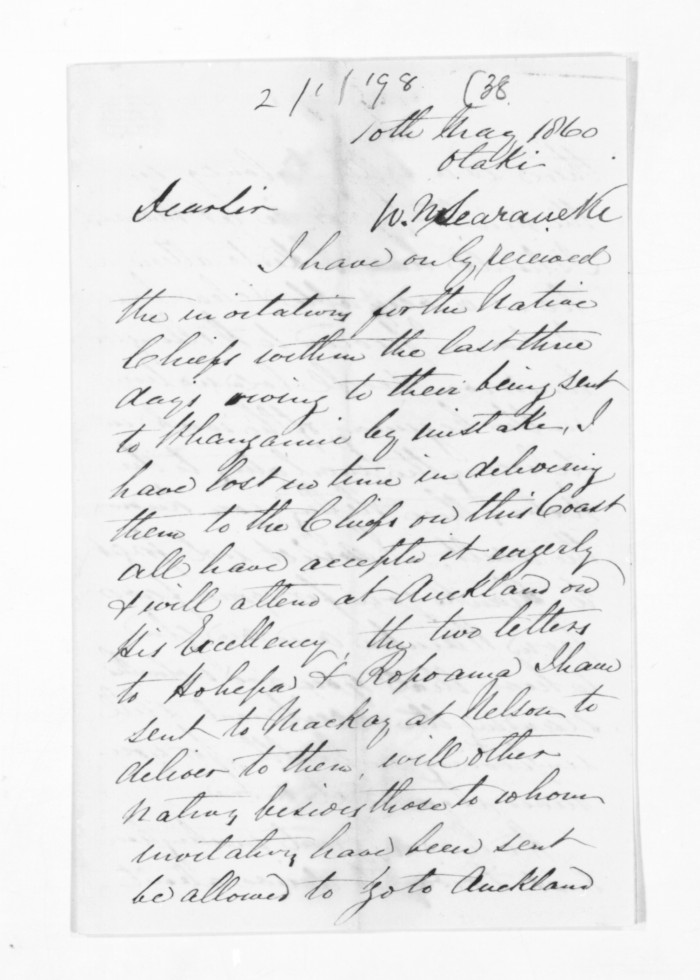 2/1/198 (38
10th May 1860
Otaki
Dear Sir W. N. Searancke
I have only received
the invitations for the Native
Chiefs within the last three
days owing to their being sent
to Whanganui by mistake, I
have lost no time in delivering
them to the Chiefs on this Coast
all have accepted it eagerly
& will attend at Auckland on
His Excellency, the two letters
to Hohepa & Ropoama I have
sent to Mackay at Nelson to
deliver to them, will other
Natives besides those to whom
invitations have been sent
be allowed to go to Auckland